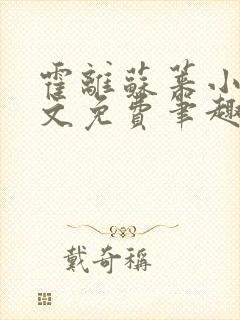 霍離蘇慕小
文免費筆趣
戴奇稱